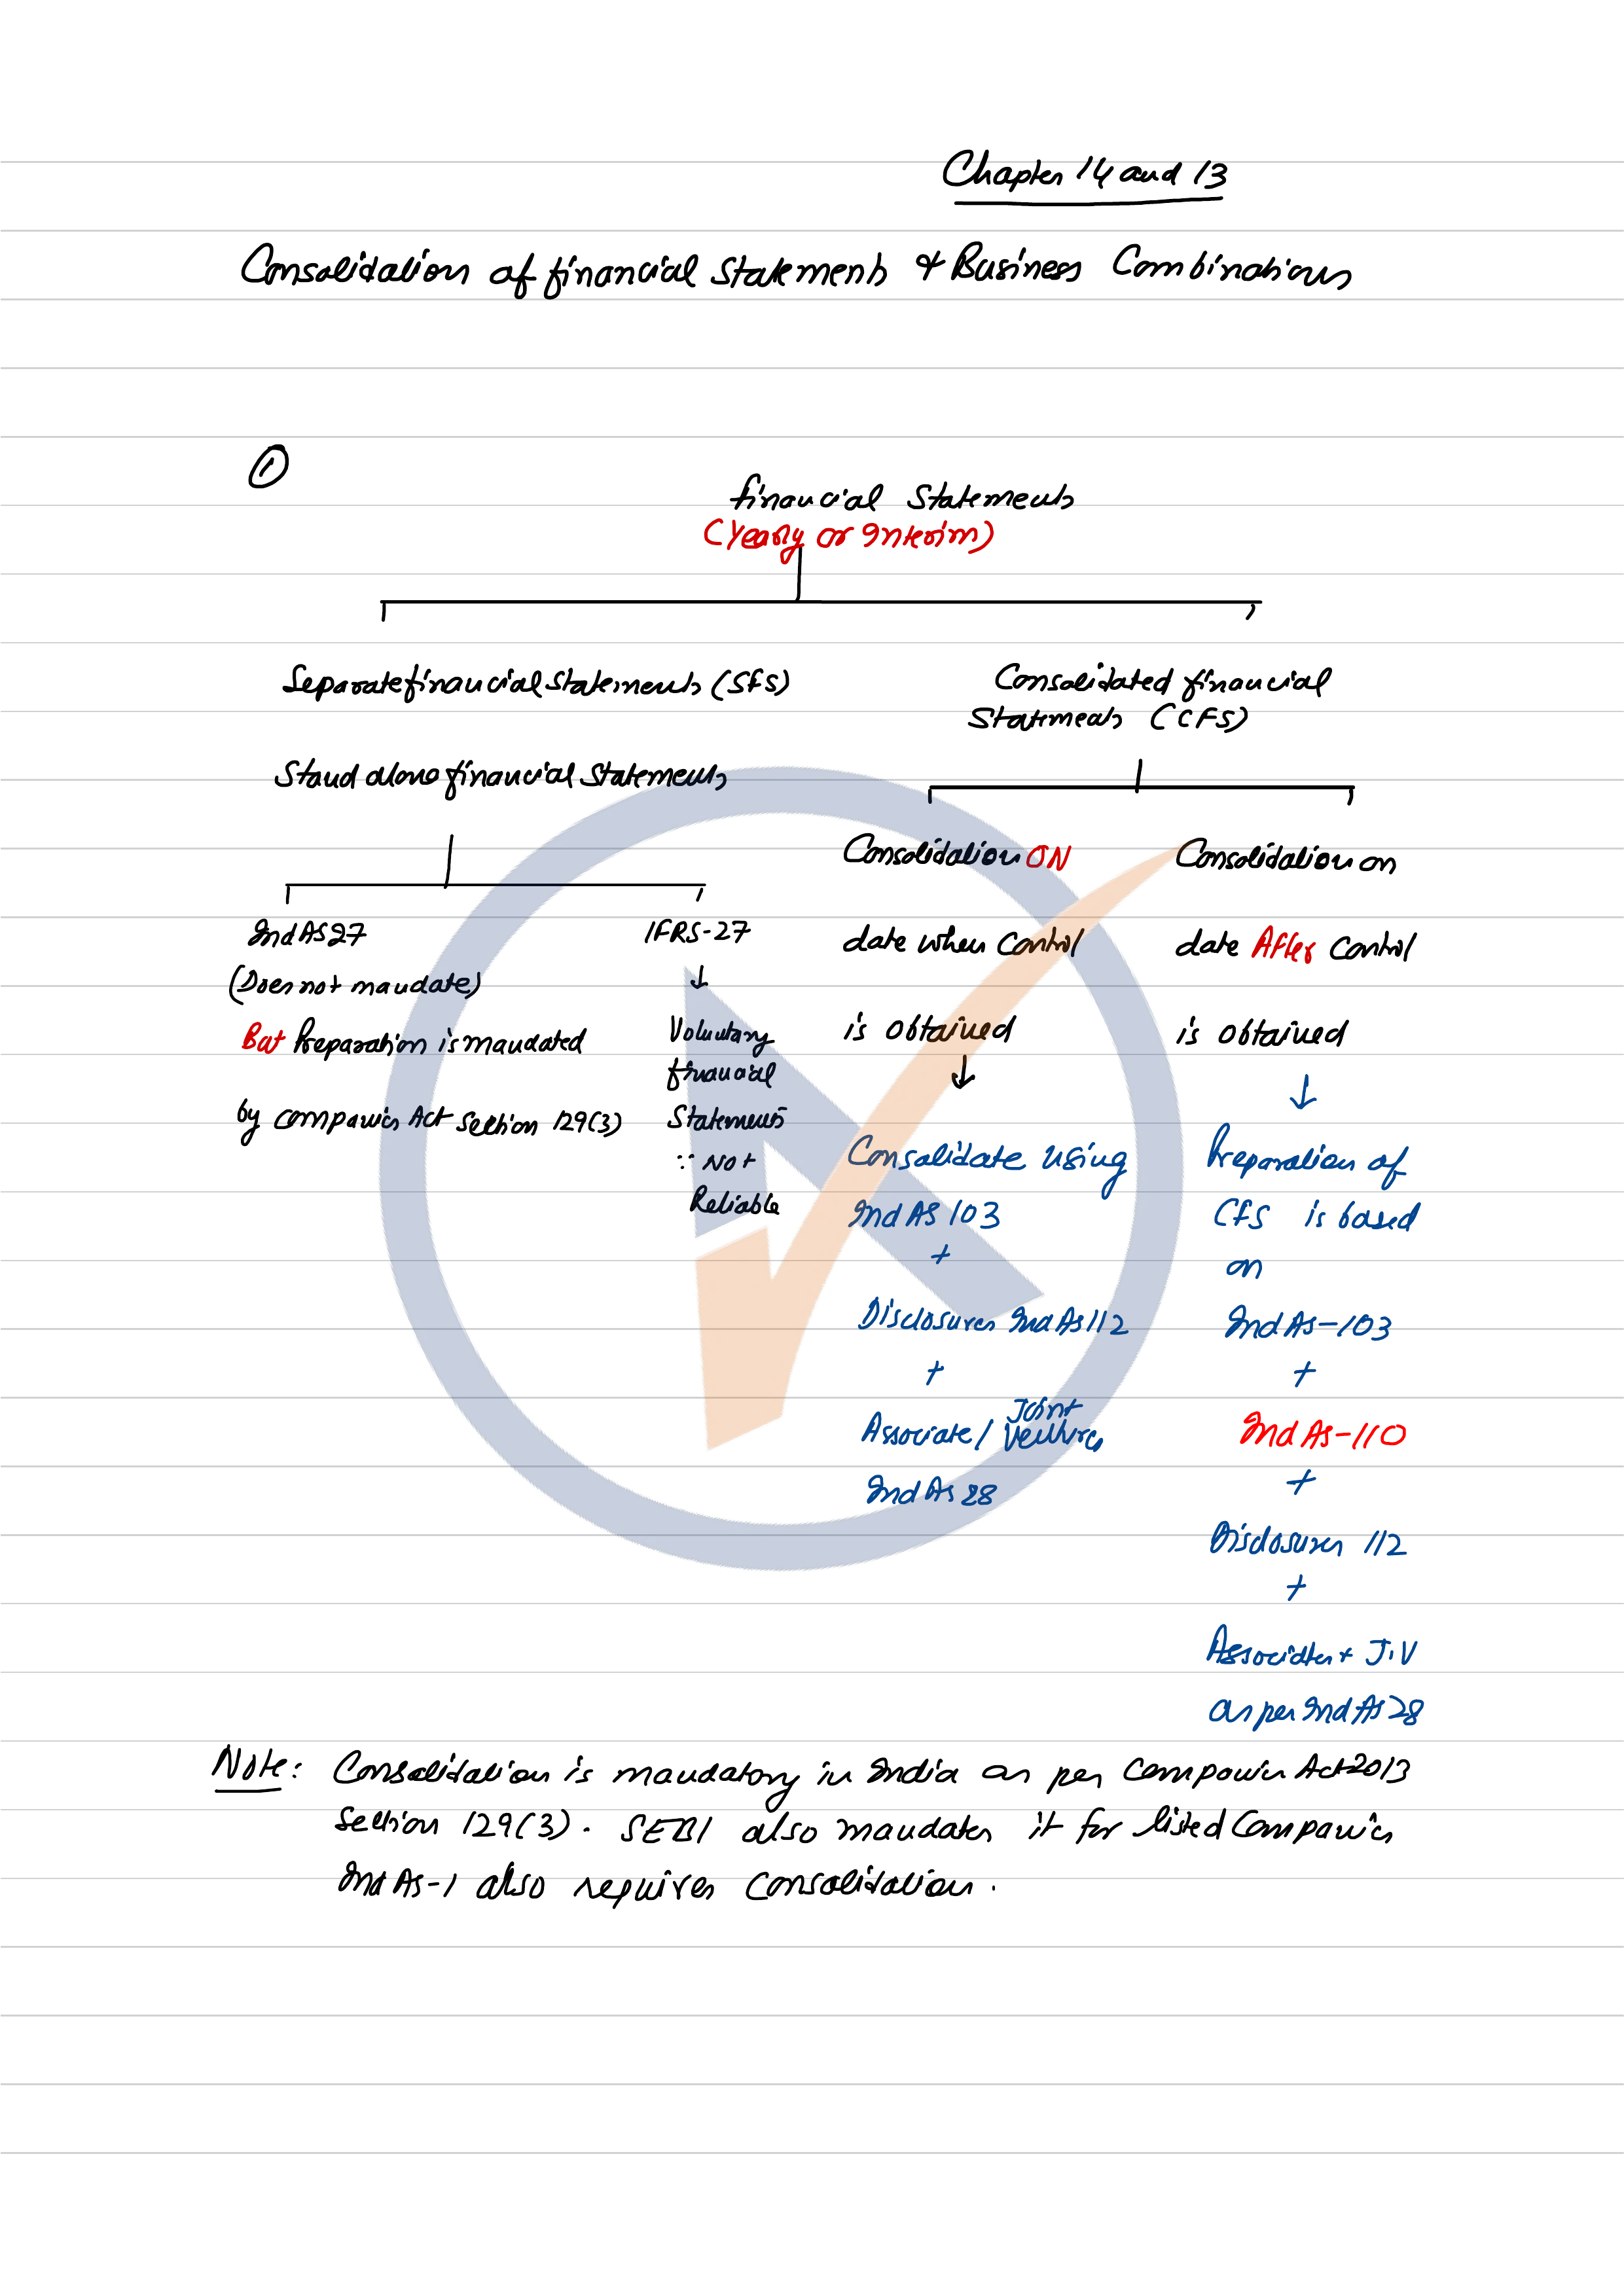 Chapter 14 and 13
Consolidation of financial Statements & Business Combinations
1
financial Statements
(Yearly or Interim)
Separate financial Statements (SFS)
Stand alone financial Statements
Ind AS 27
(Does not mandate)
But Preparation is mandated
by companies Act Section 129(3)
IFRS-27
↓
Voluntary
financial
Statements
∵ Not
Reliable
Consolidated financial
Statements (CFS)
Consolidation ON
date when Control
is obtained
↓
Consolidate using
Ind AS 103
+
Disclosures Ind AS 112
+
Associate/ Joint
Ventures
Ind AS 28
Consolidation on
date After Control
is obtained
↓
Preparation of
CFS is based
on
Ind AS-103
+
Ind AS-110
+
Disclosures 112
+
Associates + J.V
as per Ind AS 28
Note: Consolidation is mandatory in India as per Companies Act 2013
Section 129(3). SEBI also mandates it for listed Companies
Ind AS-1 also requires Consolidation.